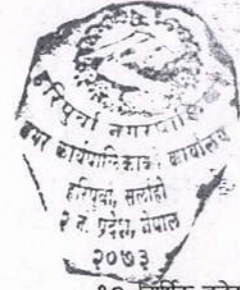 हरिपुर्वा नगरपालिका
नगर कार्यपालिकाको कार्यालय
हरिपुर्वा, सर्लाही
२ नं. प्रदेश, नेपाल
२०७३